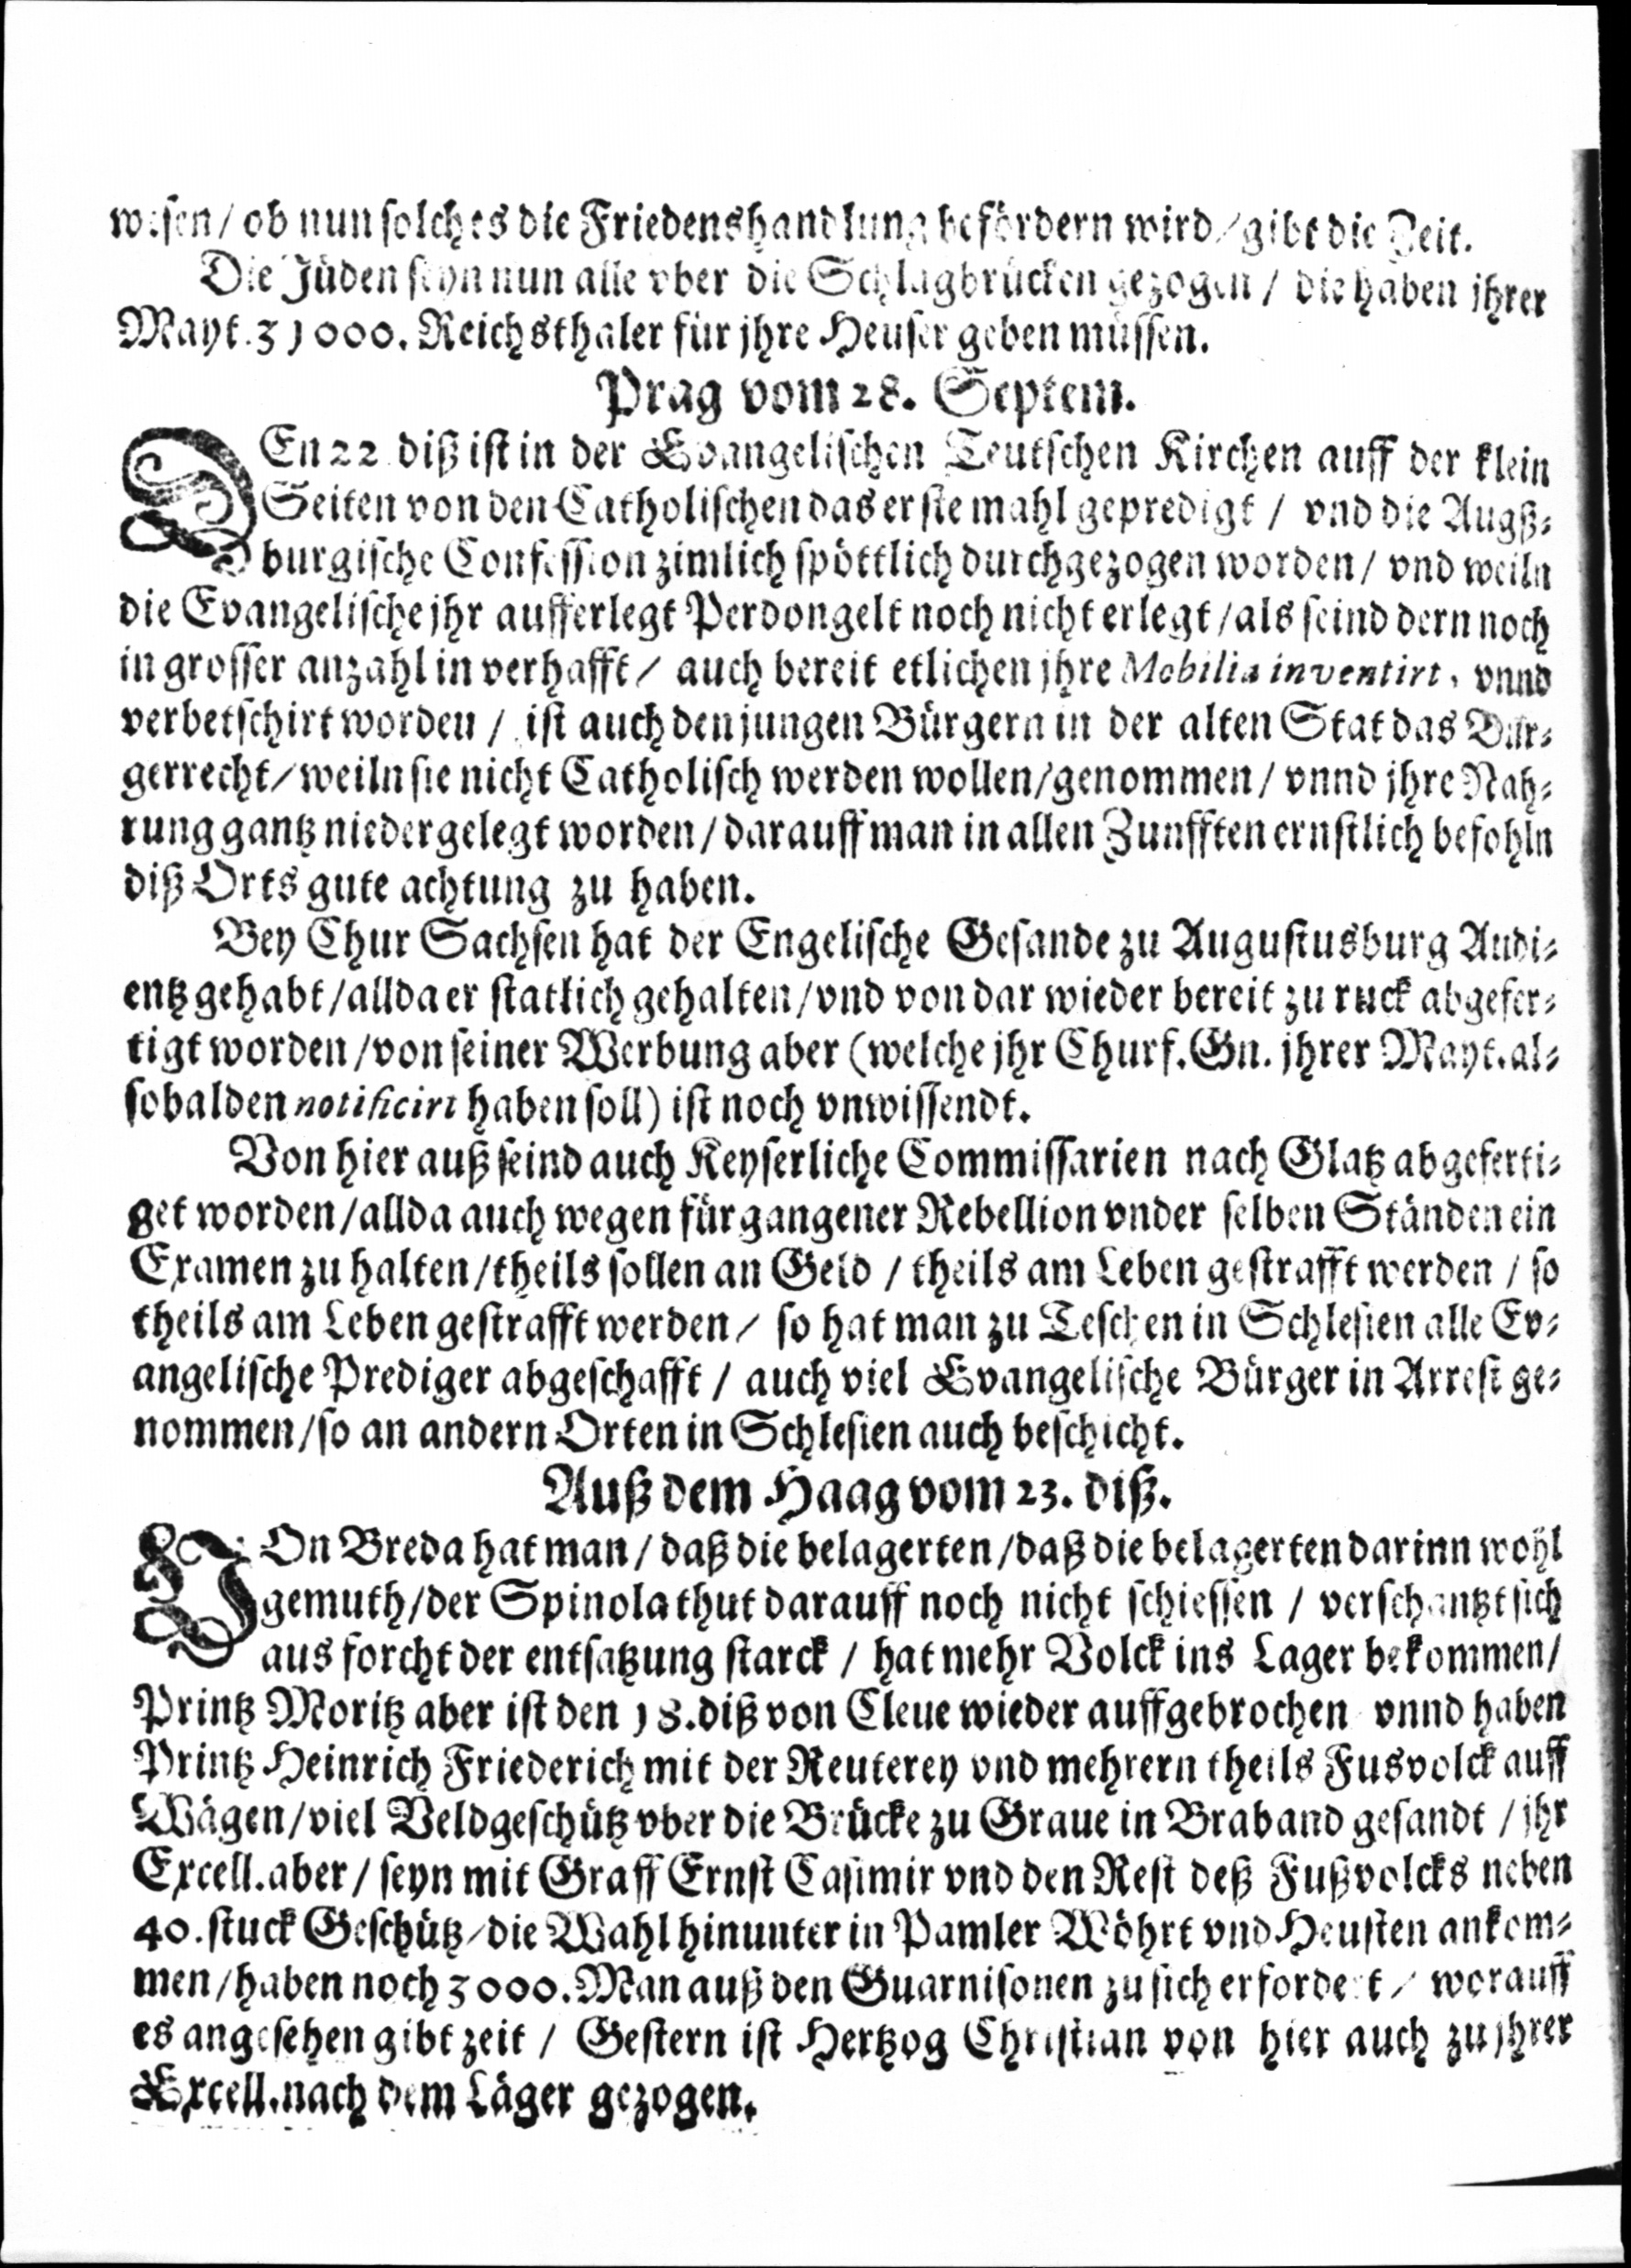 wesen/ ob nun solches die Friedenshandlung befördern wird/ gibt die Zeit.
Die Jüden seyn nun alle vber die Schlagbrücken gezogen / die haben jhrer
Mayt. 31000. Reichsthaler für jhre Heuser geben müssen.
Prag vom 28. Septem.
DEn 22 diß ist in der Evangelischen Teutschen Kirchen auff der klein
Seiten von den Catholischen das erste mahl gepredigt / vnd die Augß-
burgische Confession zimlich spöttlich durchgezogen worden/ vnd weiln
die Evangelische jhr aufferlegt Perdongelt noch nicht erlegt/als seind dern noch
in grosser anzahl in verhafft/ auch bereit etlichen jhre Mobilia inventirt, vnnd
verbetschirt worden / ist auch den jungen Bürgern in der alten Stat das Bür-
gerrecht/weiln sie nicht Catholisch werden wollen/genommen/ vnnd jhre Nah-
rung gantz niedergelegt worden/darauff man in allen Zunfften ernstlich befohln
diß Orts gute achtung zu haben.
Bey Chur Sachsen hat der Engelische Gesande zu Augustusburg Audi-
entz gehabt/allda er statlich gehalten/vnd von dar wieder bereit zu ruck abgefer-
tigt worden/von seiner Werbung aber (welche jhr Churf. Gn. jhrer Mayt. al-
sobalden notificirt haben soll) ist noch vnwissendt.
Von hier auß seind auch Keyserliche Commissarien nach Glatz abgeferti-
get worden/allda auch wegen fürgangener Rebellion vnder selben Ständen ein
Examen zu halten/theils sollen an Geld / theils am Leben gestrafft werden / so
theils am Leben gestrafft werden/ so hat man zu Teschen in Schlesien alle Ev-
angelische Prediger abgeschafft / auch viel Evangelische Bürger in Arrest ge-
nommen/so an andern Orten in Schlesien auch beschicht.
Auß dem Haag vom 23. diß.
VOn Breda hat man/ daß die belagerten/daß die belagerten darinn wohl
gemuth/der Spinola thut darauff noch nicht schiessen / verschantzt sich
aus forcht der entsatzung starck / hat mehr Volck ins Lager bekommen/
Printz Moritz aber ist den 18. diß von Cleue wieder auffgebrochen vnnd haben
Printz Heinrich Friederich mit der Reuterey vnd mehrern theils Fusvolck auff
Wägen/viel Veldgeschütz vber die Brücke zu Graue in Braband gesandt / jhr
Excell. aber/ seyn mit Graff Ernst Casimir vnd den Rest deß Fußvolcks neben
40. stuck Geschütz/die Wahl hinunter in Pamler Wöhrt vnd Heusten ankom-
men/haben noch 3000. Man auß den Guarnisonen zu sich erfordert/ worauff
es angesehen gibt zeit / Gestern ist Hertzog Christian von hier auch zu jhrer
Excell. nach dem Läger gezogen.